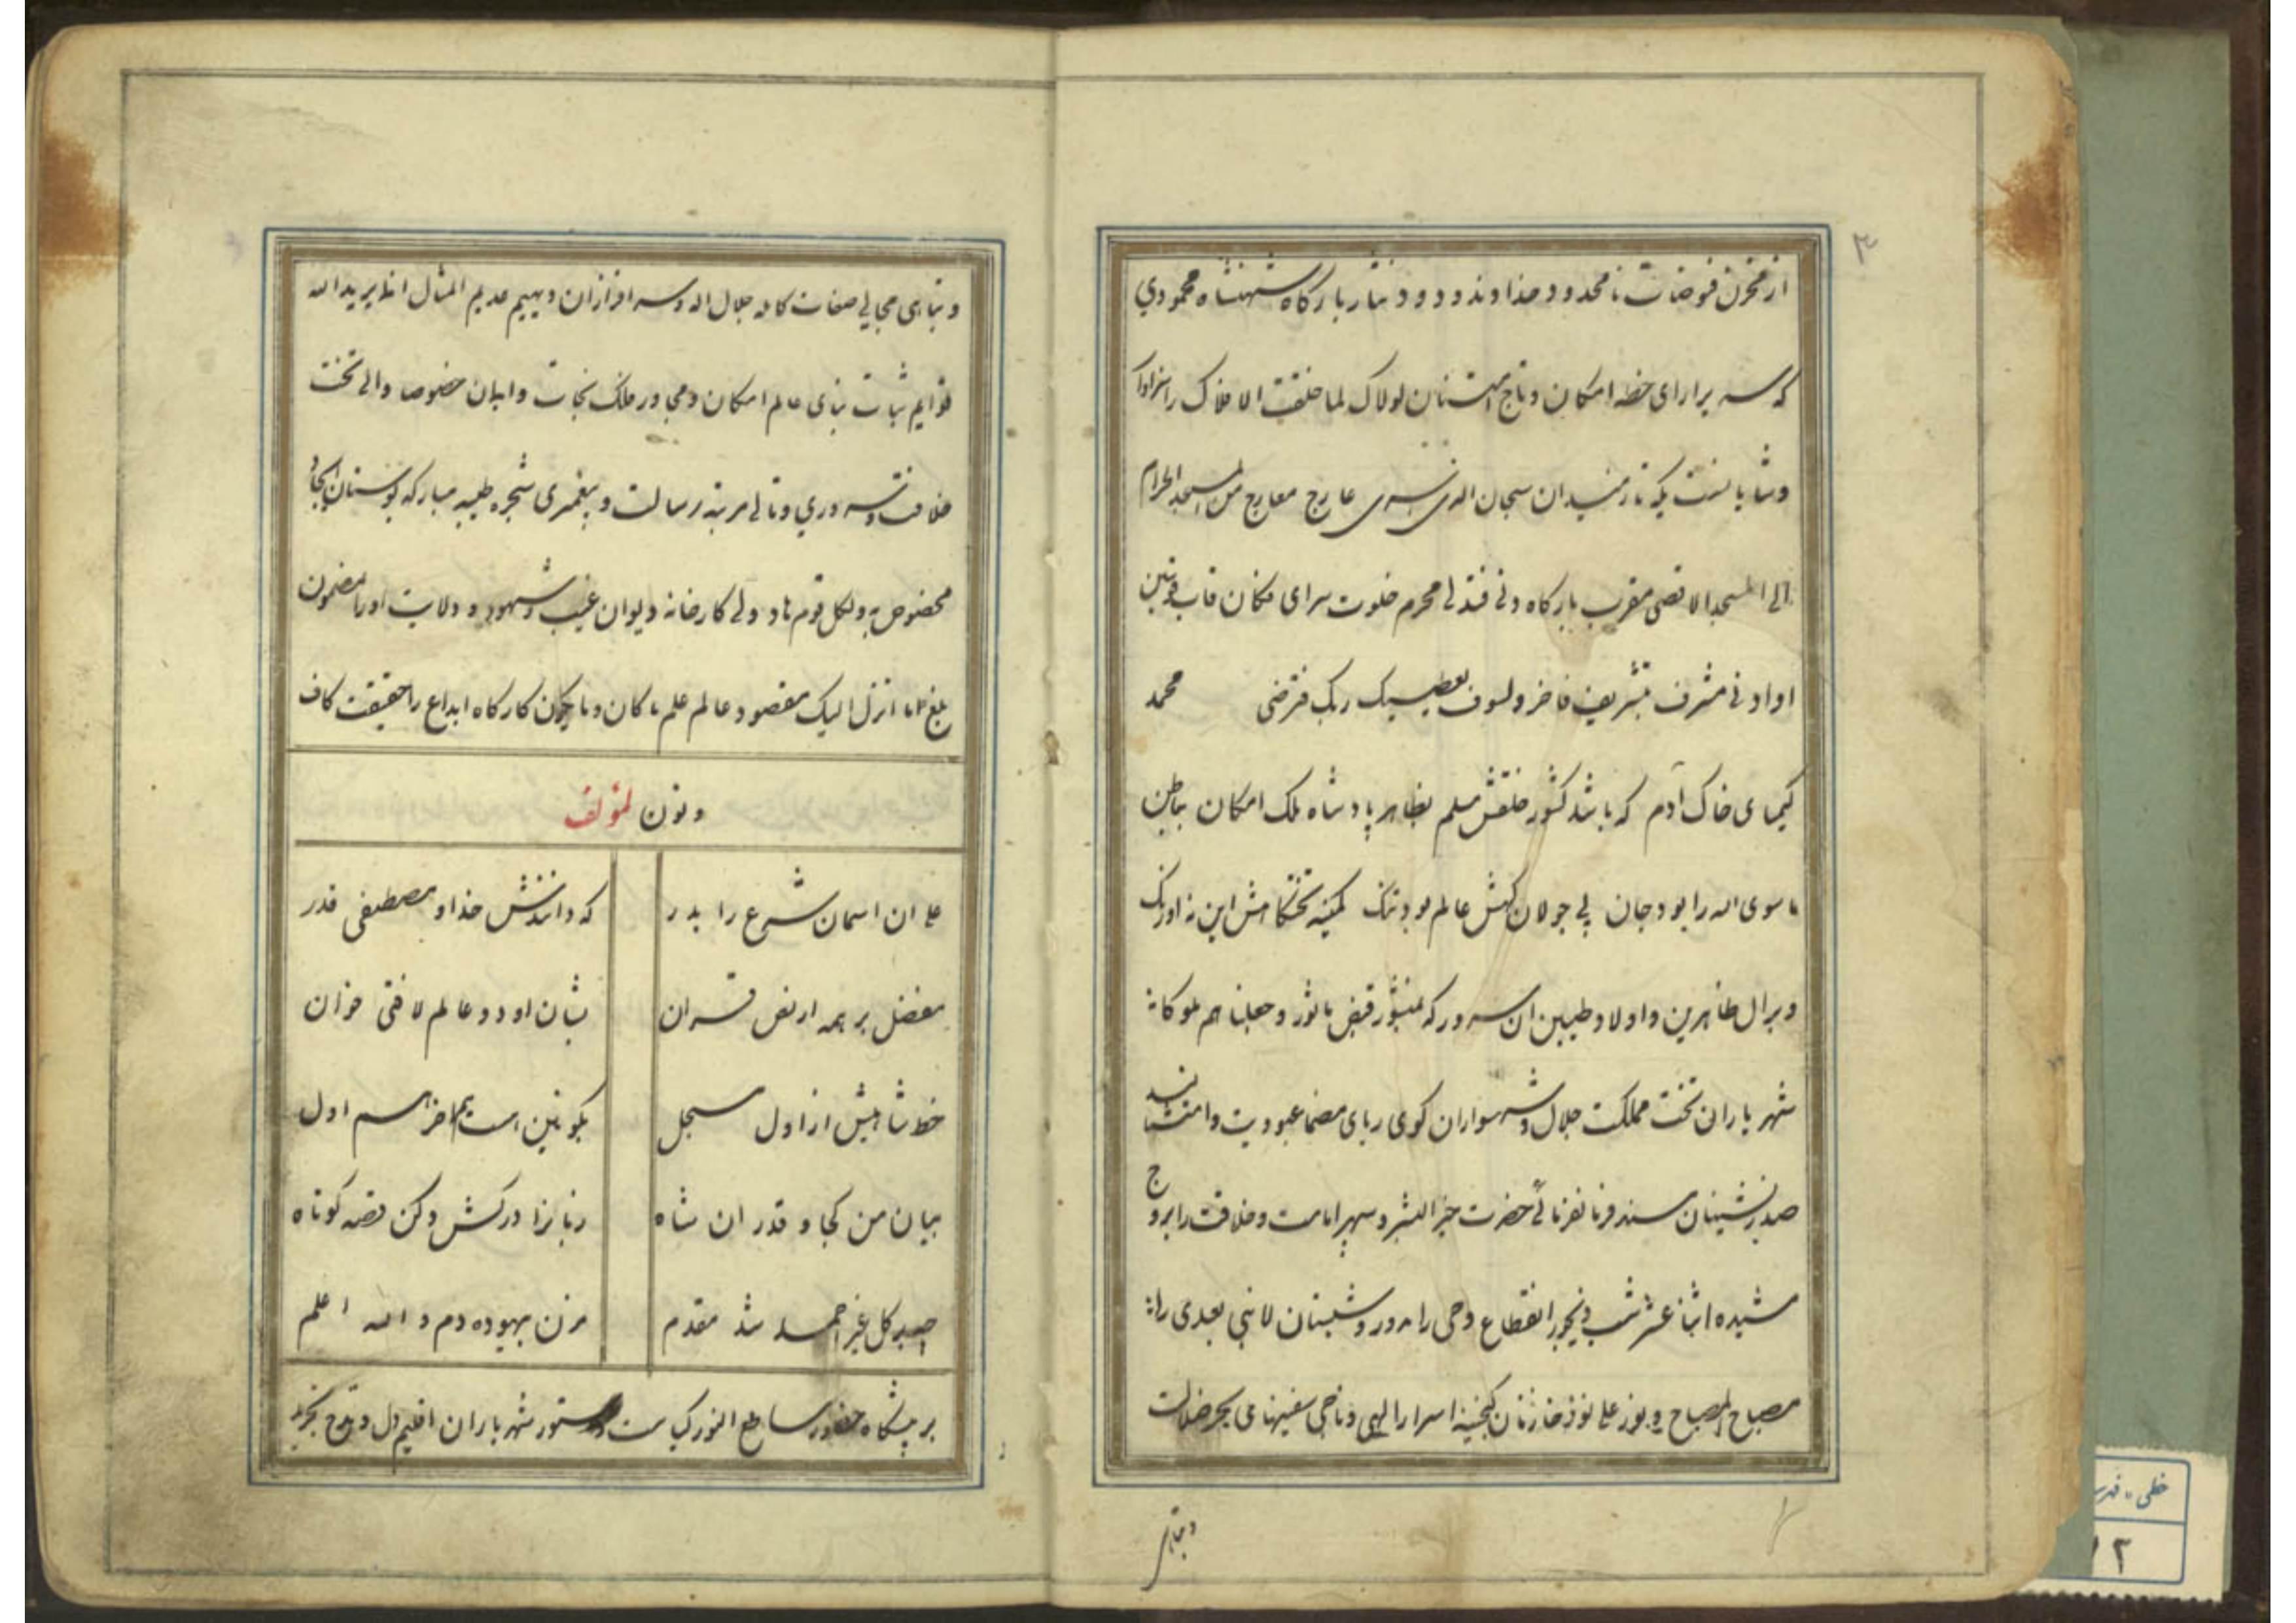 ۳
از مخزن فیوضات نامحدود خداوند ودود نثار بارکاه شهنشاه محمودی
که سریر ارای خطه امکان وتاج لولاک لما خلقت الافلاک را سزاوار
وشایانست یکه تاز میدان سبحان الذی اسری عارج معارج من المسجد الحرام
الی المسجد الاقصی مقرب بارکاه دنی فتدلی محرم خلوت سرای مکان قاب قوسین
او ادنی مشرف بتشریف فاخر ولسوف یعطیک ربک فترضی محمد
کیمیای خاک آدم که باشد کشور خلقش مسلم بظاهر پادشاه ملک امکان بباطن
ما سوی الله را بود جان پی جولان کهش عالم بود تنک کمینه تختکاهش این نه اورنک
وبر ال طاهرین واولاد طیبین ان سرور که بمنشور فیض ماثور وجعلنا هم ملوکا نه
شهریاران تخت مملکت جلال وشهسواران کوی ربای مضمار عبودیت وامتثالند
صدرنشینان مسند فرمانفرمائی حضرت خیر البشر وسپهر امامت وخلافت را بروج
مشیده اثنا عشر شب دیجور انقطاع وحی را وشبستان لا نبی بعدی را
مصباح المصباح ونور علی نور خازنان کنجینه اسرار الهی وناجی سفینهای بحر ضلالت
وتباهی
وتباهی مجالی صفات کامله جلال اله وسر افرازان دیهیم عدیم المثال انما یرید الله
قوایم ثبات بنای عالم امکان ومجاور ملک نجات وایمان خصوصا والی تخت
خلافت وسروری وتالی مرتبه رسالت وپیغمبری شجره طیبه مبارکه بوستان ایجاد
مخصوص به ولکل قوم هاد ولی کارخانه دیوان غیب وشهود و ولایت او را مضمون
بلغ ما انزل الیک مقصود عالم علم ما کان وما یکون کارکاه ابداع را حقیقت کاف
ونون لمؤلفه
علی ان اسمان شرع را بدر که دانندش خدا و مصطفی قدر
مفضل بر همه از نص قران بشان او دو عالم لا فتی خوان
خط شاهیش از اول مسجل بکونین است هم اخر هم اول
بیان من کجا و قدر ان شاه زبانرا درکش وکن قصه کوتاه
بهر کل غیر احمد شد مقدم مزن بیهوده دم والله اعلم
بر پیشکاه حضور ساطع النور دستور شهریاران اقلیم دل
خطی
۱۲